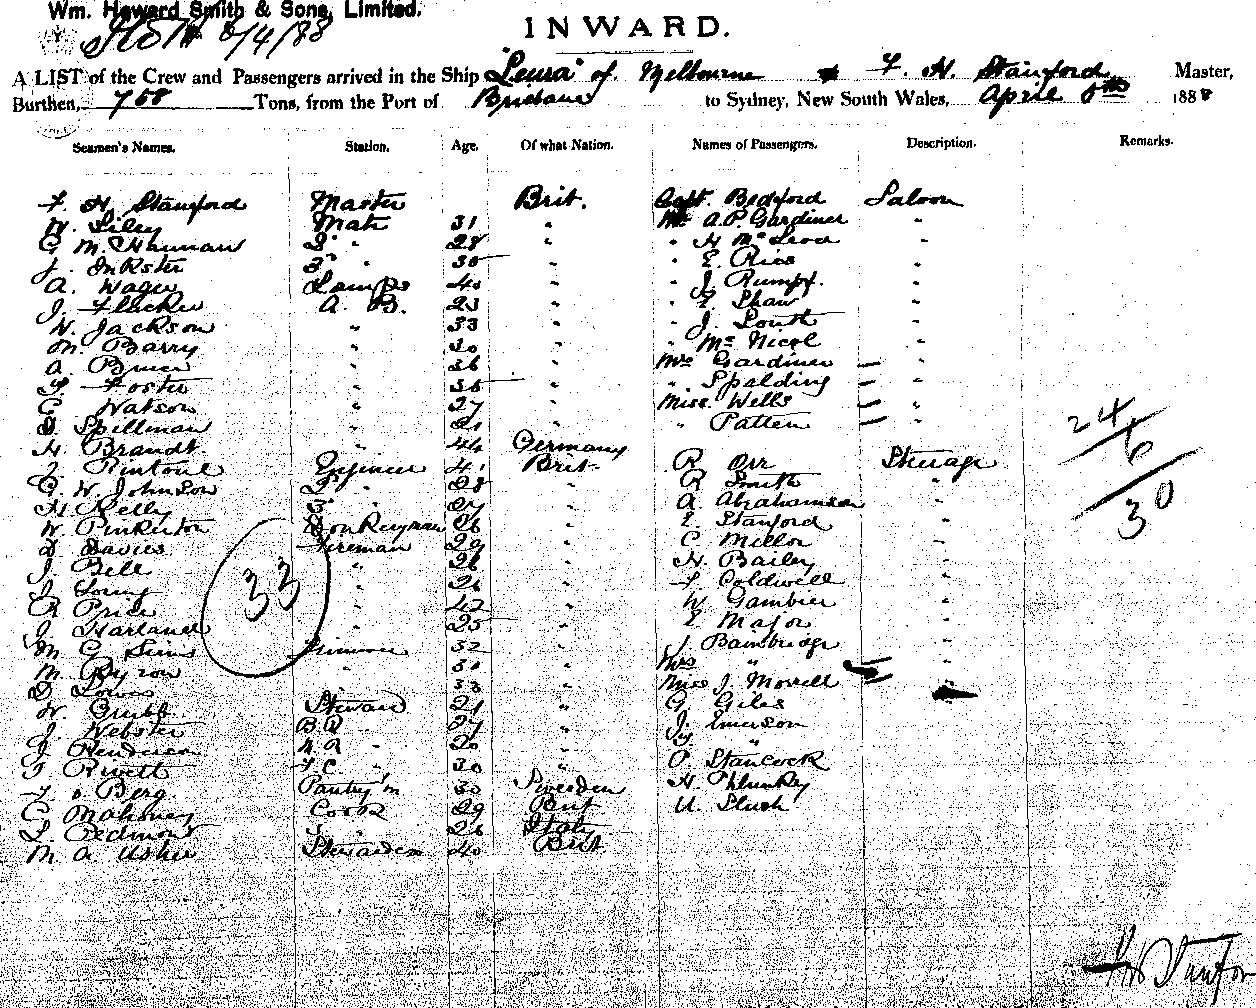 Wm. Howard Smith & Sons, Limited.
6/4/88
INWARD.
A LIST of the Crew and Passengers arrived in the Ship "Leura" of Melbourne F. H. Stanford Master,
Burthen, 758 Tons, from the Port of Brisbane to Sydney, New South Wales, April 5th 1888
Seamen's Names. Station. Age. Of what Nation. Names of Passengers. Description. Remarks.
F. H. Stanford Master Brit. Capt. Bedford Saloon
W. Liley Mate 31 " Mr A.P. Gardiner "
C. M. Hannan 2" " 28 " " H McLeod "
J. Inkster 3" " 30 " " E. Rice "
A. Wager Lamps 40 " " J. Rumpf "
J. Flucker A. B. 23 " " E. Shaw "
W. Jackson " 33 " " J. South "
M. Barry " 30 " " McNicol "
A. Bruce " 36 " Mrs Gardiner "
F. Foster " 36 " " Spalding "
C. Watson " 27 " Miss. Wells "
D. Spillman " 21 " " Patten "
H. Brandt " 44 Germany
J. Rintoul Engineer 41 Brit. R Orr Steerage
G. W. Johnson 2" " 28 " R Smith "
H. Kelly 3" " 27 " A. Abrahamson "
W. Pinkerton Donkeyman 26 " E. Stanford "
D. Davies Fireman 29 " C Mellor "
J. Bell " 26 " H. Bailey "
J. Young " 26 " F Coldwell "
R Price " 42 " W Gambier "
J. Harland " 25 " E Major "
M C Sims Trimmer 32 " J. Bainbridge "
M. Byron " 30 " Mrs " "
D. Lowe " 33 " Miss J. Morrell "
W. Grubb Steward 21 " G Giles
J. Webster B. R " 27 " J. Emerson
J. Henderson A. R " 20 " "
T Rivett F C " 30 " P Stancock
F. o Berg Pantry'm 30 Sweden H. Plunkey
C Mahoney Cook 29 Brit U. Slush
L. Pedmont 2" " 26 Italy
M. A. Usher Stewardess 40 Brit
33
24
6
30
F H Stanford